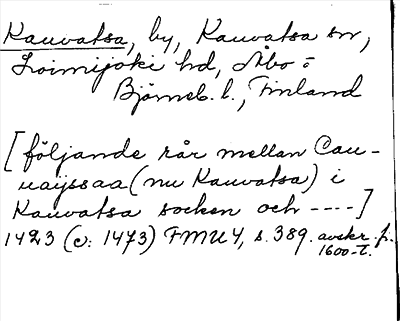 Kauvatsa, by, Kauvatsa sn,
Loimijoki hd, Åbo o
Björneb. l., Finland
[följande rår mellan Cau-
uaijssaa (nu Kauvatsa) i
Kauvatsa socken och ----]
1423 (c: 1473) FMU 4, s. 389. avskr. fr.
1600-t.